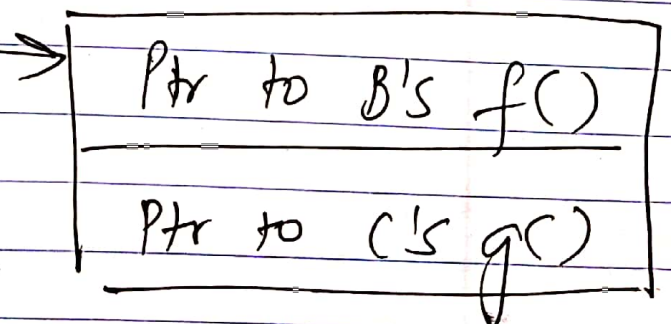 Ptr to B's f()
Ptr to C's g()